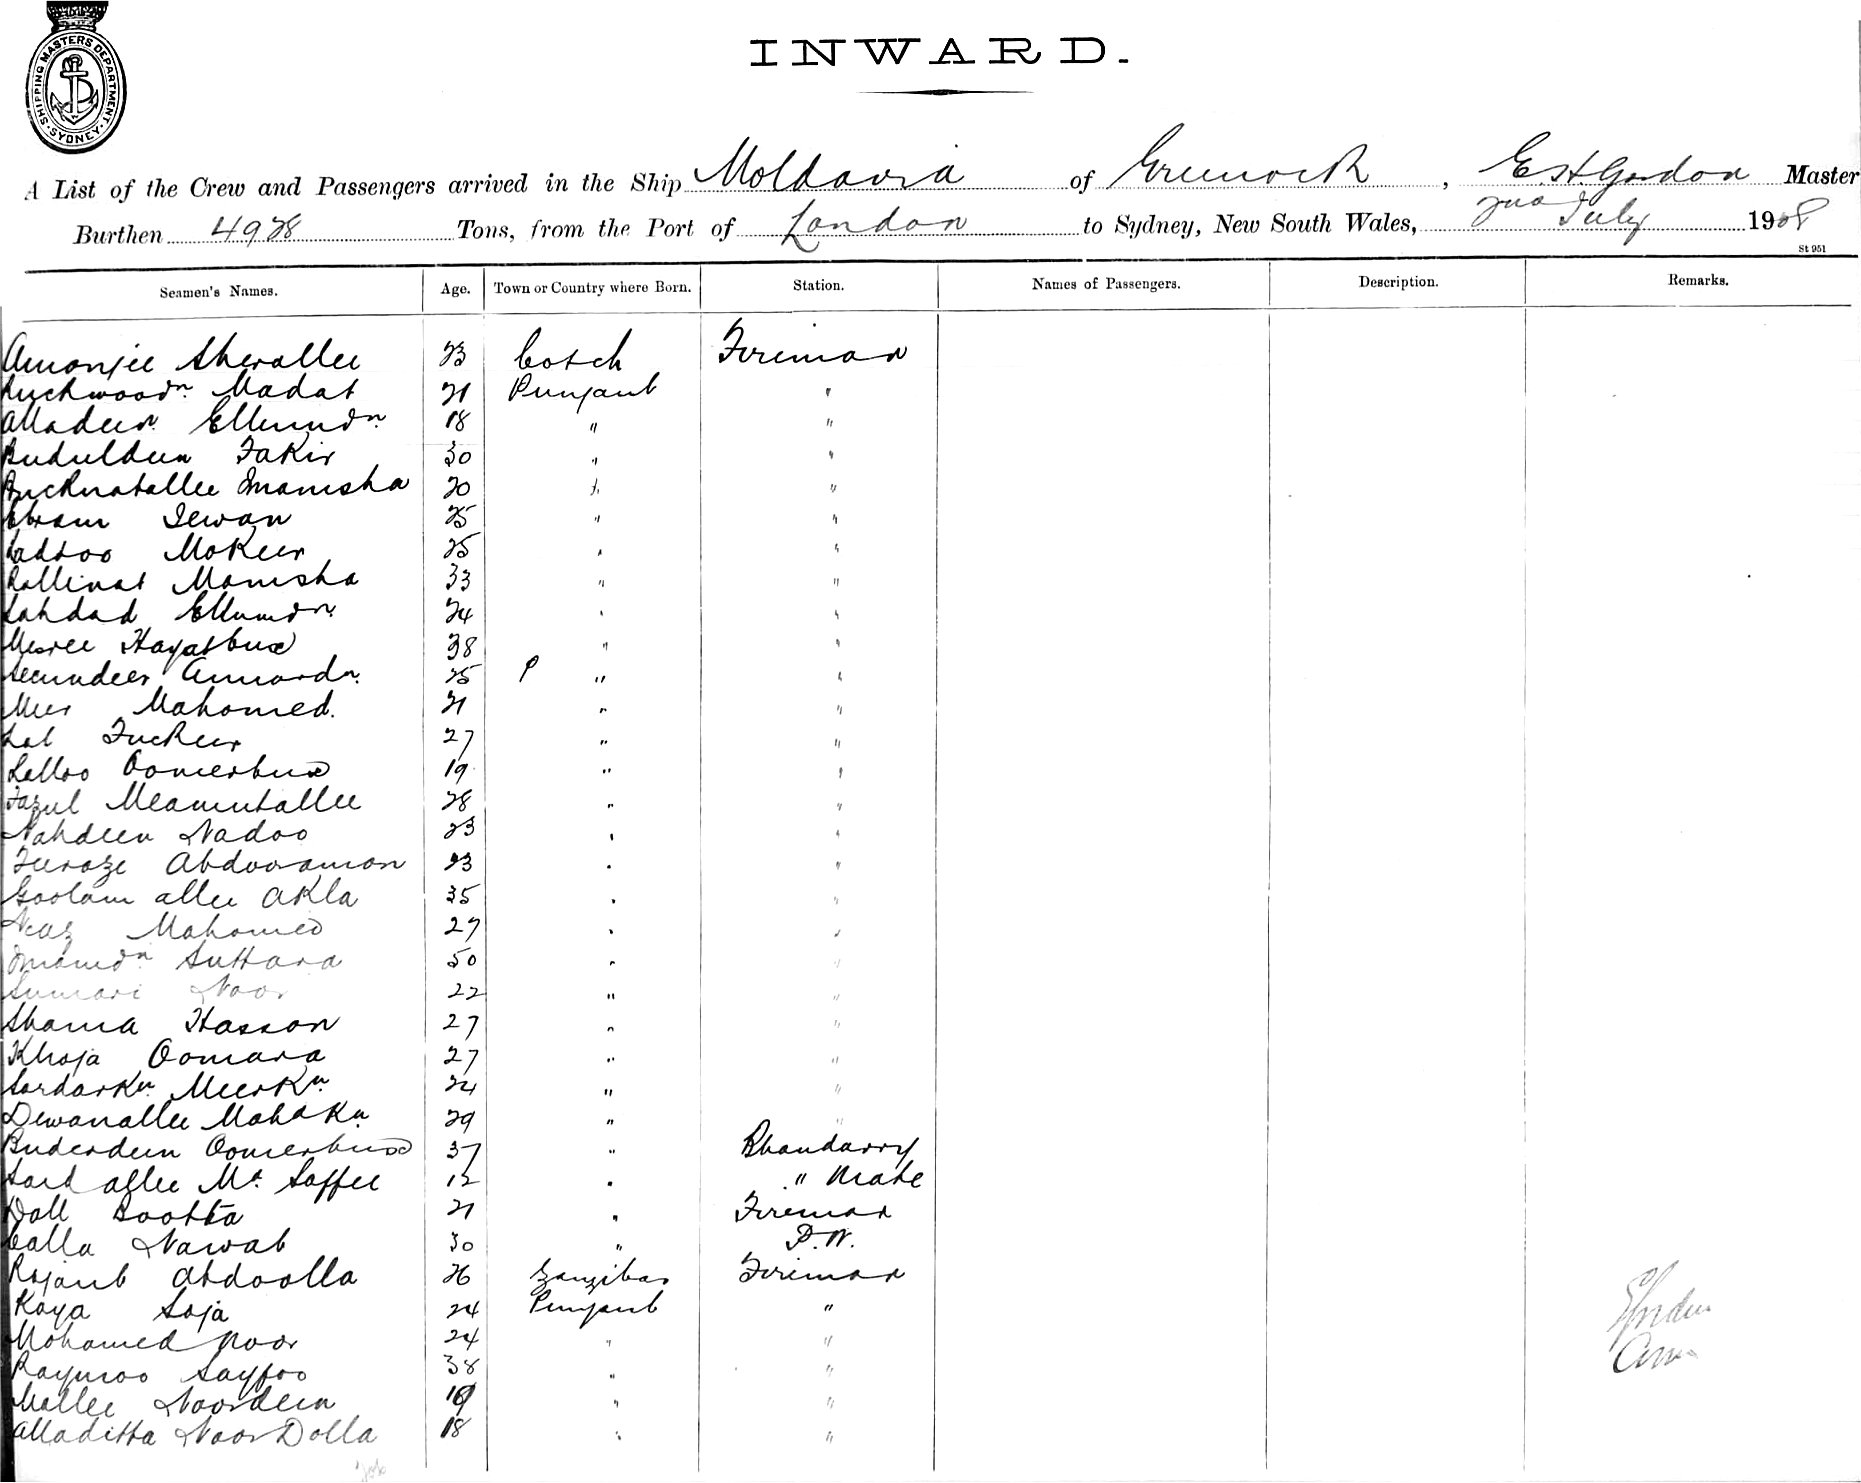 SHIPPING MASTERS DEPARTMENT · SYDNEY ·
INWARD.
A List of the Crew and Passengers arrived in the Ship Moldavia of Greenock, E.H. Gordon Master
Burthen 4928 Tons, from the Port of London to Sydney, New South Wales, 2nd July 1908
St 951
Seamen's Names. Age. Town or Country where Born. Station. Names of Passengers. Description. Remarks.
Amonjee Sherallee 23 Cotch Fireman
Madat 21 Punjaub "
Alladeen Ellumdn 18 " "
Buduldeen Fakir 30 " "
Imamsha 20 " "
Ebram Jewan 25 " "
Mokeer 25 " "
Mamsha 33 " "
Lahdad Ellumdn 24 " "
Hayatbux 38 " "
Secundeer 25 P " "
Meer Mahomed. 21 " "
Lal Fuckeer 27 " "
Lalloo Oomerbux 19 " "
Fazul Meamutallee 28 " "
Nahdeen Nadoo 23 " "
Feroze Abdooraman 23 " "
Goolam allee Akla 35 " "
Neaz Mahomed 27 " "
Imamdn Suttara 50 " "
Sumari Noor 22 " "
Shama Hassan 27 " "
Khoja Oomara 27 " "
Sardarkn MeerKn 24 " "
Dewanallee Mahakn 29 " "
Buderdeen Oomerbux 37 " Bhandarry
allee Md. Saffee 12 " " Mate
Dall Bootta 21 " Fireman
Calla Nawab 30 " P.W.
Rajaub Abdoolla 26 Zanzibar Fireman
Kaya Saja 24 Punjaub "
Mohamed Noor 24 " "
Raymoo Sayfoo 38 " "
Mallee Noordeen 19 " "
Alladitta Noor Dolla 18 " "